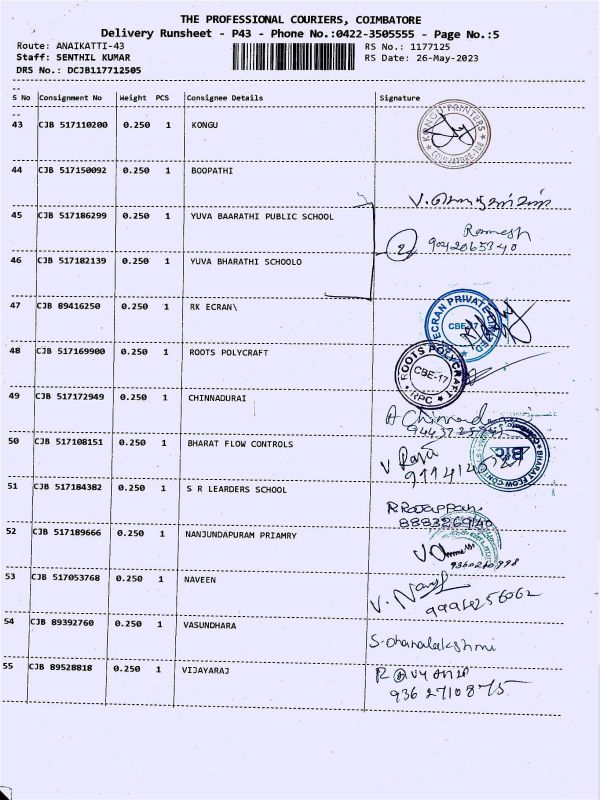 THE PROFESSIONAL COURIERS, COIMBATORE
Delivery Runsheet - P43 - Phone No.:0422-3505555 - Page No.:5
Route: ANAIKATTI-43 RS No.: 1177125
Staff: SENTHIL KUMAR RS Date: 26-May-2023
DRS No.: DCJB117712505
--
S No Consignment No Weight PCS Consignee Details Signature
--
43 CJB 517110200 0.250 1 KONGU KONGU PRINTERS
44 CJB 517150092 0.250 1 BOOPATHI
45 CJB 517186299 0.250 1 YUVA BAARATHI PUBLIC SCHOOL Ramesh
2 9042065340
46 CJB 517182139 0.250 1 YUVA BHARATHI SCHOOLO
47 CJB 89416250 0.250 1 RK ECRAN\ ECRAN PRIVATE LIMITED CBE-17
48 CJB 517169900 0.250 1 ROOTS POLYCRAFT ROOTS POLYCRAFT CBE-17 RPC
49 CJB 517172949 0.250 1 CHINNADURAI
50 CJB 517108151 0.250 1 BHARAT FLOW CONTROLS V Raja BHARAT FLOW CONTROLS BFC
51 CJB 517184382 0.250 1 S R LEARDERS SCHOOL
52 CJB 517189666 0.250 1 NANJUNDAPURAM PRIAMRY
53 CJB 517053768 0.250 1 NAVEEN
54 CJB 89392760 0.250 1 VASUNDHARA S-Dhanalakshmi
55 CJB 89528818 0.250 1 VIJAYARAJ
9362710875